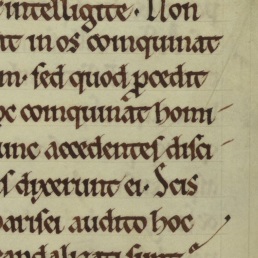 intelligite · Non
at in os coinquinat
m · sed quod p̲cedit
oc coinquinat homi
unc accedentes disci
s dixerunt ei · Scis
harisei audito hoc
candalizati sunt